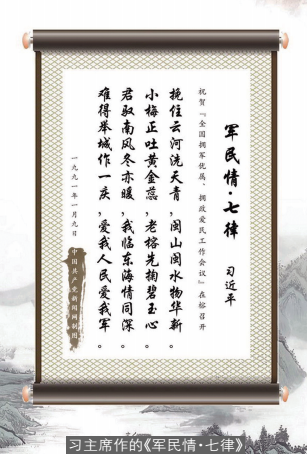 军民情·七律
习近平
祝贺『全国拥军优属、拥政爱民工作会议』在榕召开
挽住云河洗天青，闽山闽水物华新。
小梅正吐黄金蕊，老榕先掬碧玉心。
君驭南风冬亦暖，我临东海情同深。
难得举城作一庆，爱我人民爱我军。
一九九一年一月九日
中国共产党新闻网制图
习主席作的《军民情·七律》